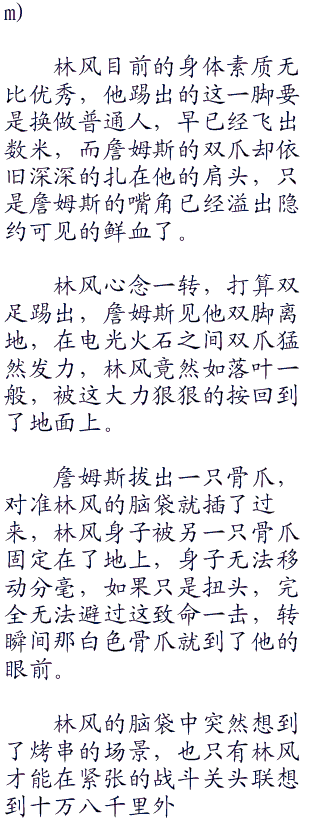 m)
林风目前的身体素质无
比优秀，他踢出的这一脚要
是换做普通人，早已经飞出
数米，而詹姆斯的双爪却依
旧深深的扎在他的肩头，只
是詹姆斯的嘴角已经溢出隐
约可见的鲜血了。
林风心念一转，打算双
足踢出，詹姆斯见他双脚离
地，在电光火石之间双爪猛
然发力，林风竟然如落叶一
般，被这大力狠狠的按回到
了地面上。
詹姆斯拔出一只骨爪，
对准林风的脑袋就插了过
来，林风身子被另一只骨爪
固定在了地上，身子无法移
动分毫，如果只是扭头，完
全无法避过这致命一击，转
瞬间那白色骨爪就到了他的
眼前。
林风的脑袋中突然想到
了烤串的场景，也只有林风
才能在紧张的战斗关头联想
到十万八千里外